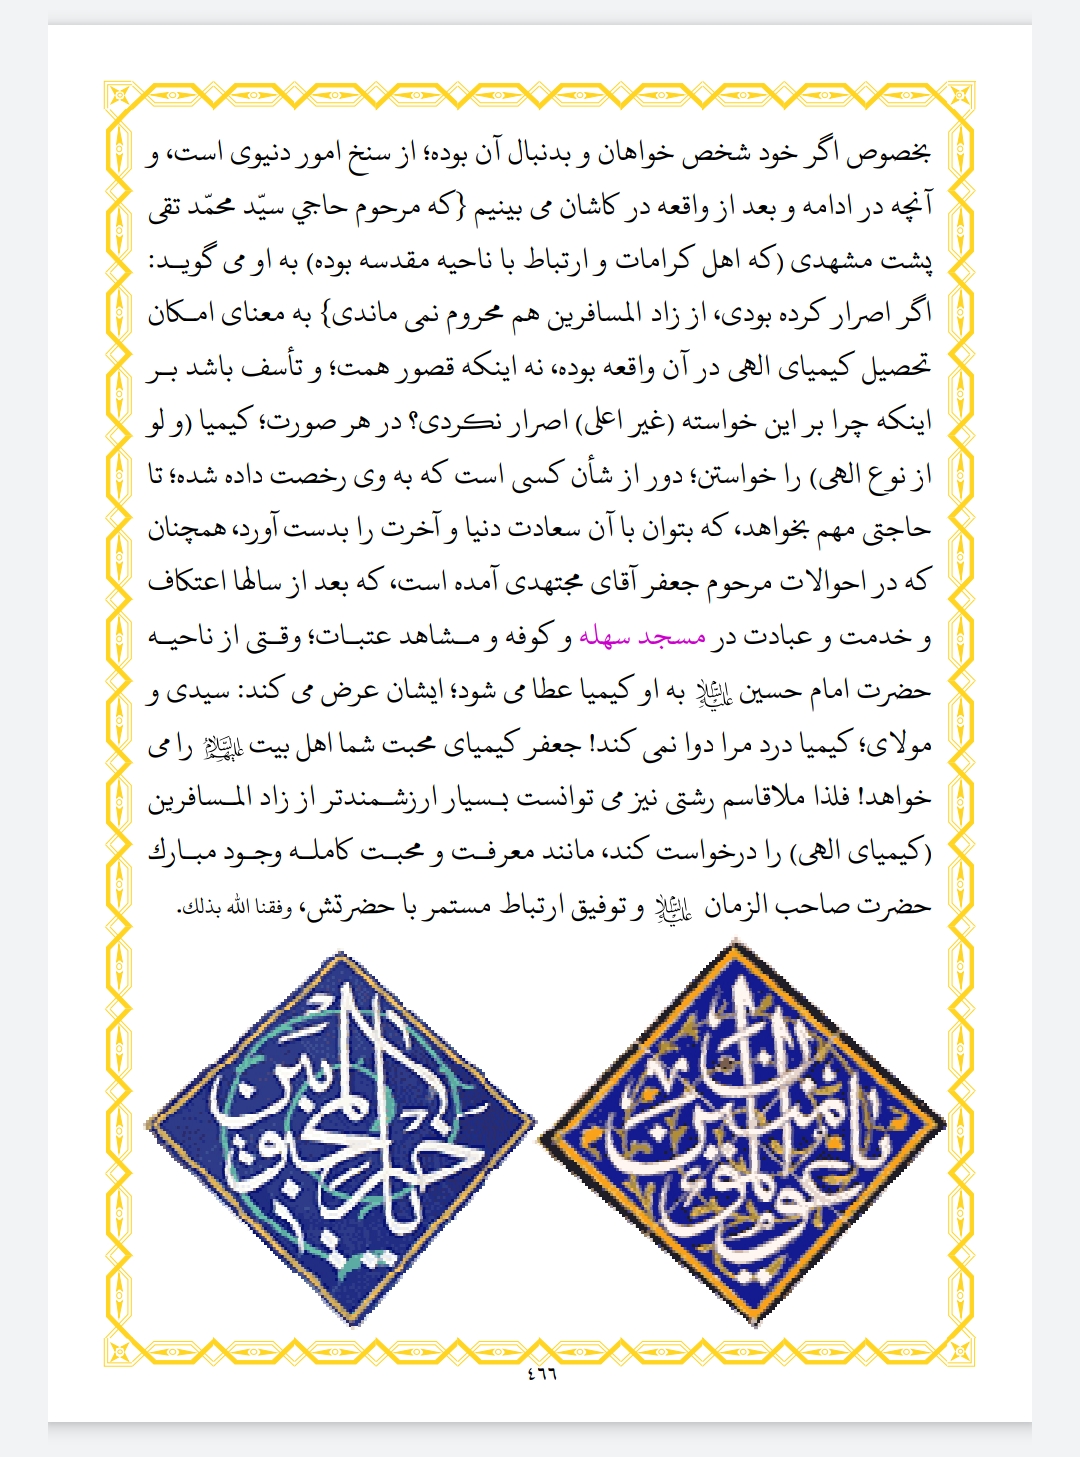 بخصوص اگر خود شخص خواهان و بدنبال آن بوده؛ از سنخ امور دنیوی است، و
آنچه در ادامه و بعد از واقعه در کاشان می بینیم {که مرحوم حاجي سیّد محمّد تقی
پشت مشهدی (که اهل کرامات و ارتباط با ناحیه مقدسه بوده) به او می گویـد:
اگر اصرار کرده بودی، از زاد المسافرین هم محروم نمی ماندی} به معنای امـکان
تحصیل کیمیای الهی در آن واقعه بوده، نه اینکه قصور همت؛ و تأسف باشد بـر
اینکه چرا بر این خواسته (غیر اعلی) اصرار نکردی؟ در هر صورت؛ کیمیا (و لو
از نوع الهی) را خواستن؛ دور از شأن کسی است که به وی رخصت داده شده؛ تا
حاجتی مهم بخواهد، که بتوان با آن سعادت دنیا و آخرت را بدست آورد، همچنان
که در احوالات مرحوم جعفر آقای مجتهدی آمده است، که بعد از سالها اعتکاف
و خدمت و عبادت در مسجد سهله و کوفه و مـشاهد عتبـات؛ وقـتی از ناحیـه
حضرت امام حسین علیه السلام به او کیمیا عطا می شود؛ ایشان عرض می کند: سیدی و
مولای؛ کیمیا درد مرا دوا نمی کند! جعفر کیمیای محبت شما اهل بیت علیهم السلام را می
خواهد! فلذا ملاقاسم رشتی نیز می توانست بـسیار ارزشـمندتر از زاد المـسافرین
(کیمیای الهی) را درخواست کند، مانند معرفـت و محبـت کاملـه وجـود مبـارك
حضرت صاحب الزمان علیه السلام و توفیق ارتباط مستمر با حضرتش، وفقنا الله بذلك.
٤٦٦